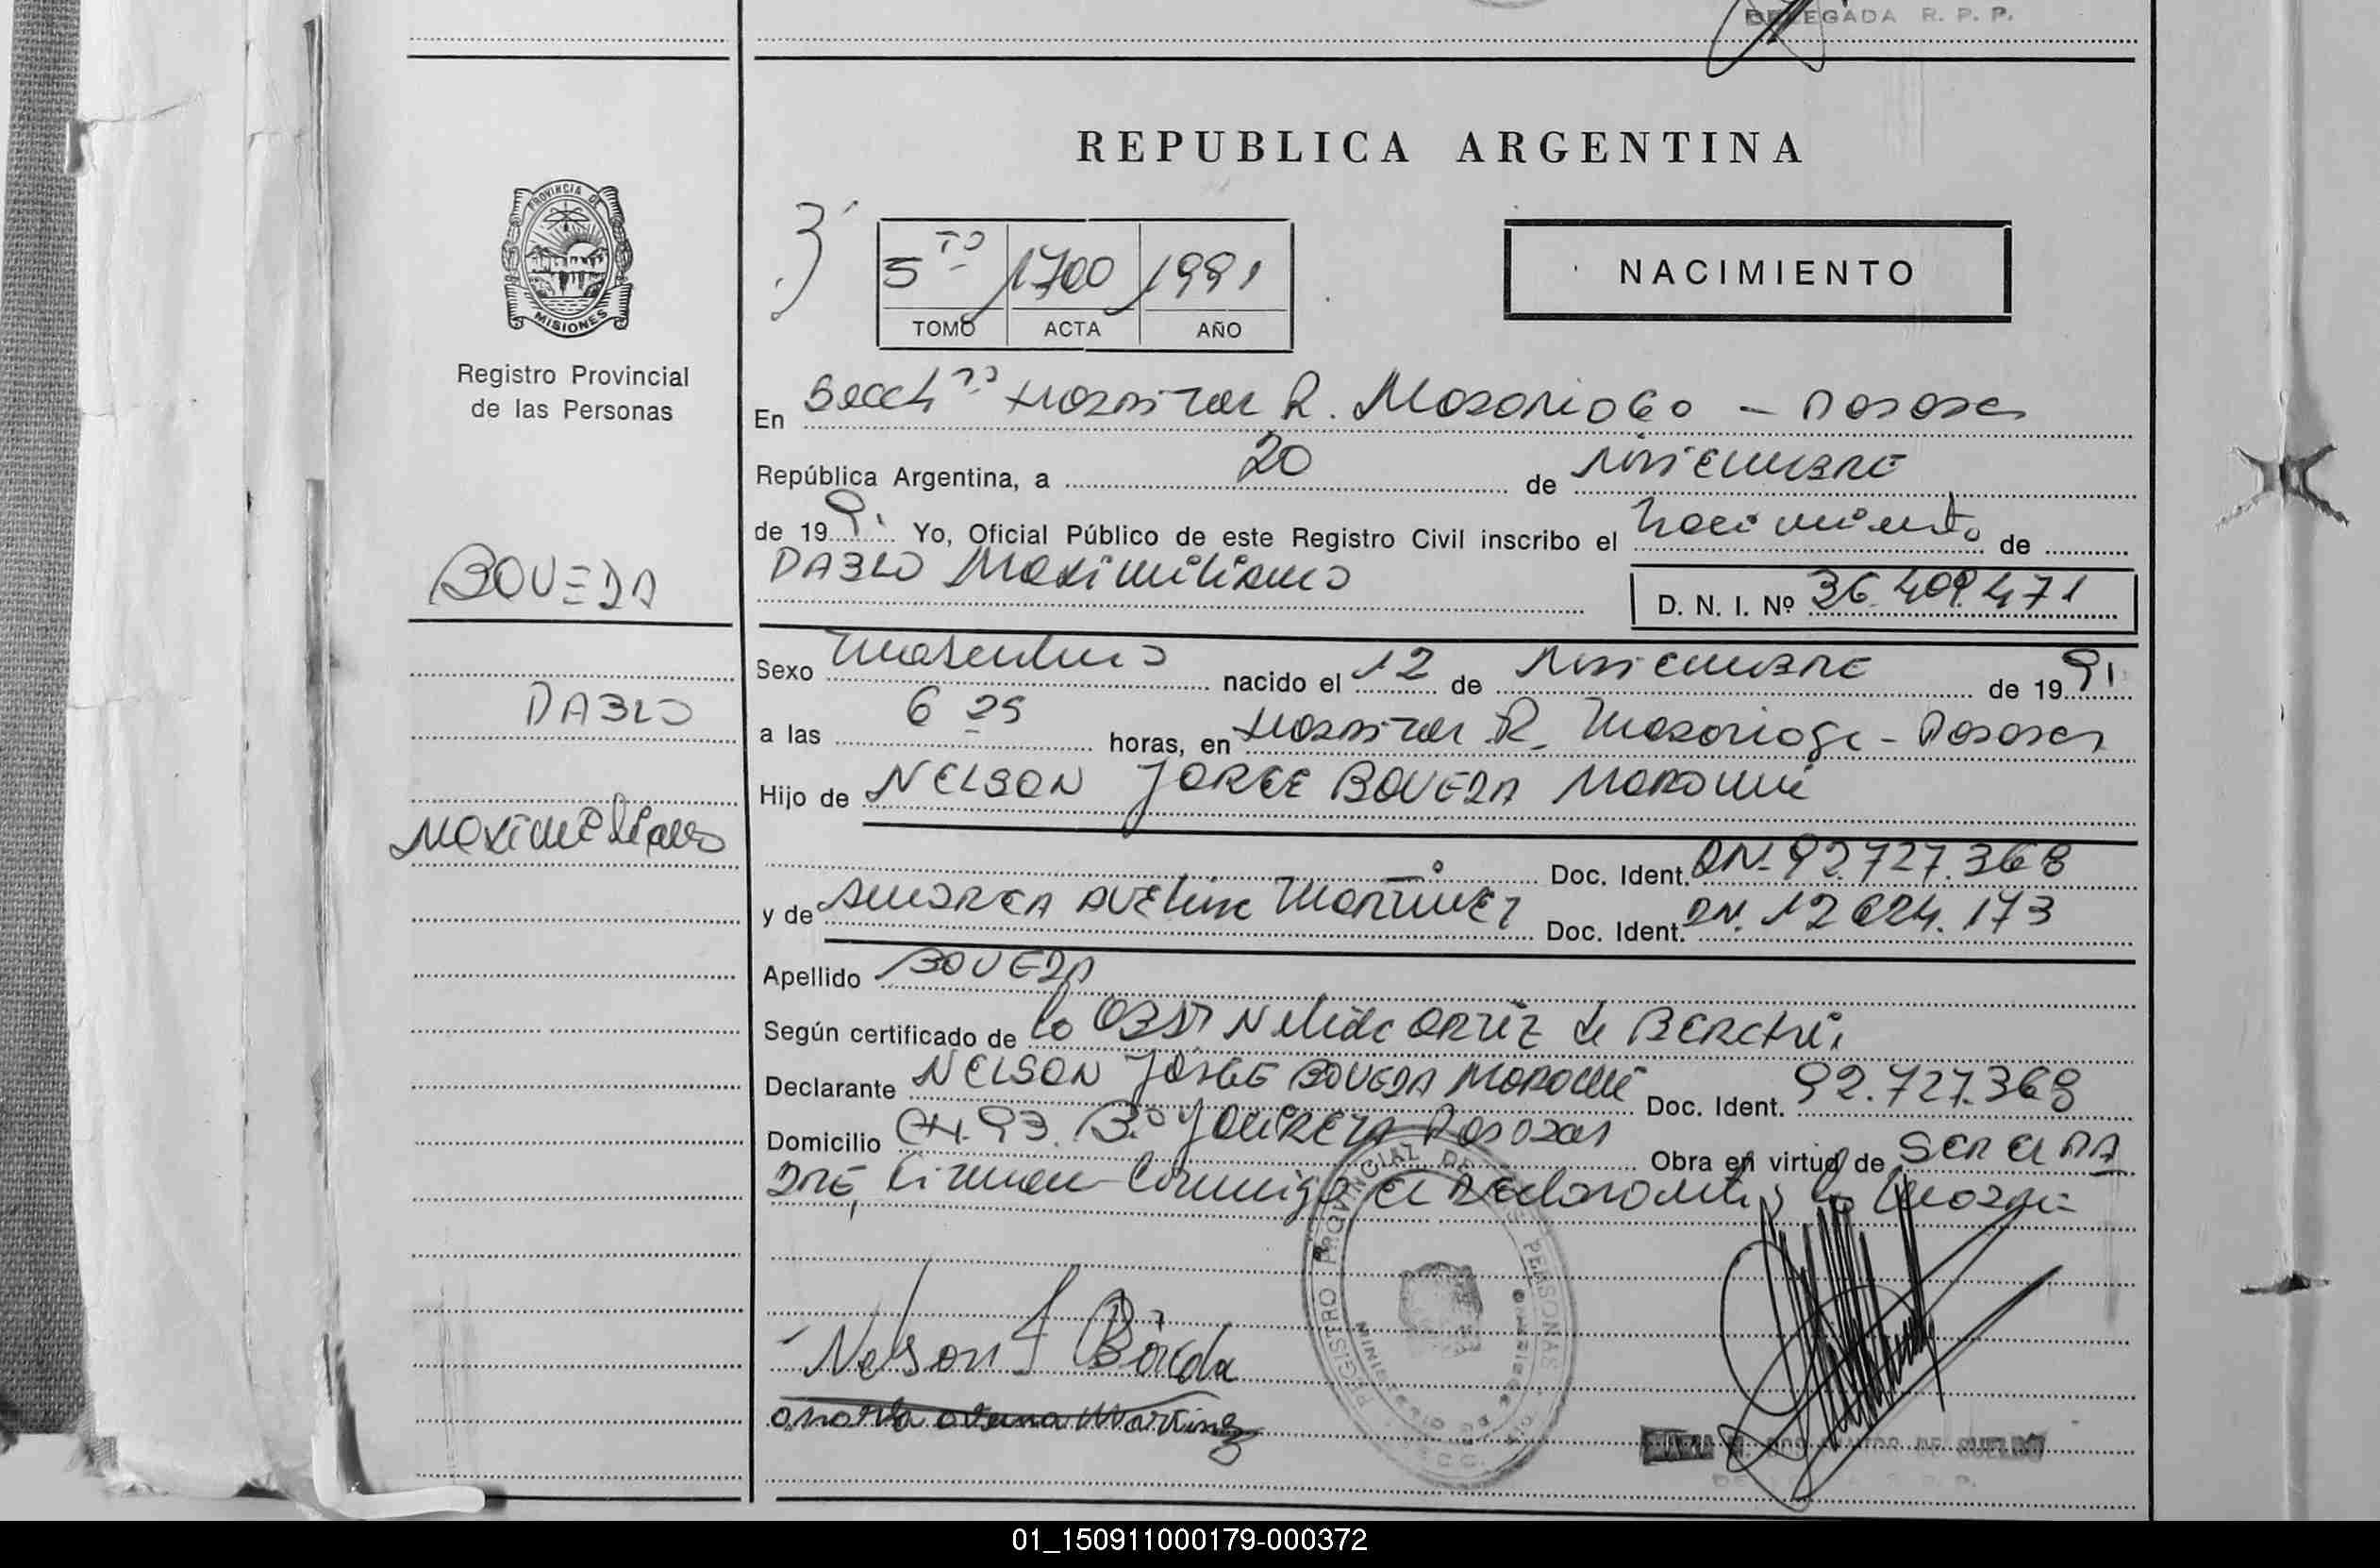 DELEGADA R. P. P.
REPUBLICA ARGENTINA
PROVINCIA DE
MISIONES
Registro Provincial
de las Personas
5to 1700 1991
TOMO ACTA AÑO
NACIMIENTO
En Hospital R. Madariaga - Posadas
República Argentina, a 20 de Noviembre
de 1991 Yo, Oficial Público de este Registro Civil inscribo el nacimiento de
PABLO Maximiliano
D. N. I. Nº 36.409.471
BOVEDA
PABLO
Maximiliano
Sexo masculino nacido el 12 de Noviembre de 1991
a las 6 25 horas, en Hospital R. Madariaga - Posadas
Hijo de NELSON JORGE BOVEDA
Doc. Ident. DN. 92.727.368
y de ANDREA AVELINA MARTINEZ Doc. Ident. DN. 12.624.173
Apellido BOVEDA
Según certificado de la OBST. Nelida ORTIZ de
Declarante NELSON JORGE BOVEDA Doc. Ident. 92.727.368
Domicilio CH. 93. Bº YACIRETA Posadas Obra en virtud de SER el PA
DRE, firman conmigo el declarante y la madre
REGISTRO PROVINCIAL DE LAS PERSONAS
Nelson J Bóveda
Martinez
DOS SANTOS DE
01_150911000179-000372